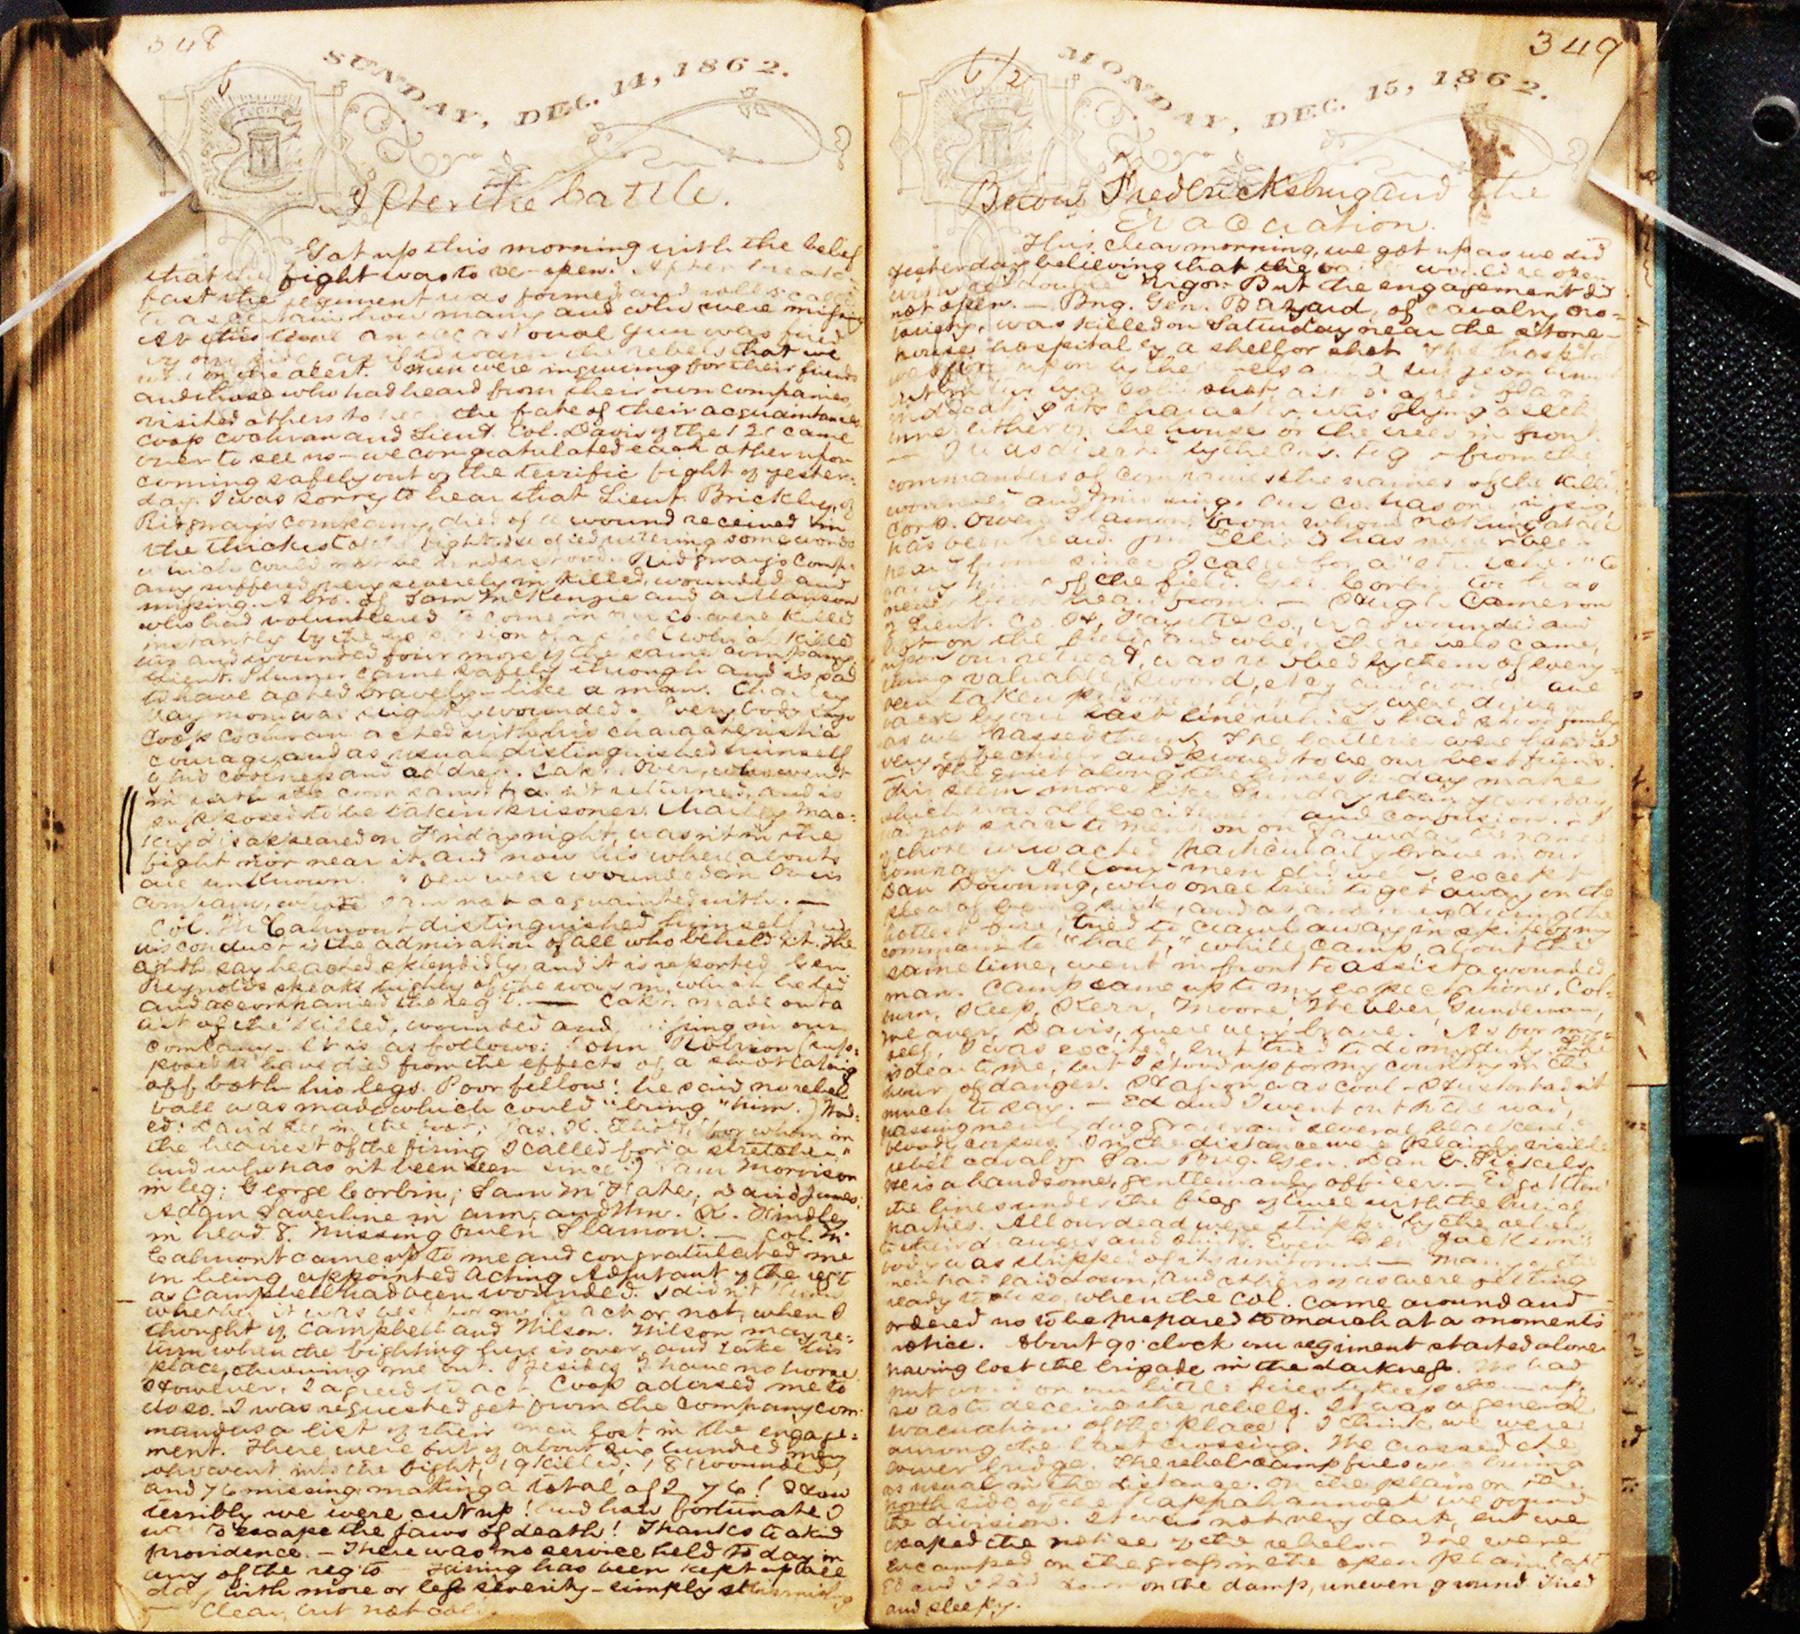 348
SUNDAY, DEC. 14, 1862.
After the battle.
Got up this morning with the belief
that the fight was to re-open. After break-
fast the regiment was formed and rolls called
to ascertain how many and who were missing
At this time an occasional gun was fired
by our side, as if to warn the rebels that we
were on the alert. Men were inquiring for their friends
and those who had heard from their own companies,
visited others to hear the fate of their acquaintances
Coop Cochran and Lieut. Col. Davis of the 121 came
over to see us - we congratulated each other upon
coming safely out of the terrific fight of yester-
day. I was sorry to hear that Lieut. Brickley, of
Ridgway's company, died of a wound received in
the thickest of the fight. He died uttering some words
which could not be understood. Ridgway's comp-
any suffered very severely in killed, wounded and
missing. A bro. of Sam McKenzie and a Manson
who had volunteered to come in the Co. were killed
instantly by the explosion of a shell which killed
six and wounded four more of the same company.
Lieut. Plumer came safely through and is said
to have acted bravely - like a man. Charley
was slightly wounded. Everybody says
Coop Cochran acted with his characteristic
courage, and as usual distinguished himself
by his coolness and address. Capt. Over, who went
in with the company, has not returned, and is
supposed to be taken prisoner. Charley Mac-
kay disappeared on Friday night, wasn't in the
fight nor near it, and now his whereabouts
are unknown. A few were wounded in Over's
company, whom I am not acquainted with. —
Col. McCalmont distinguished himself and
his conduct is the admiration of all who beheld it. The
eighth say he acted splendidly and it is reported Gen.
Reynolds speaks highly of the way in which he led
and accompanied the reg't. — Capt. made out a
list of the killed, wounded and missing in our
company. It is as follows: John Rolison (sup-
posed to have died from the effects of a shot taking
off both his legs. Poor fellow! he said no rebel
ball was made which could "bring" him.) Wound-
ed: in the for whom in
the heaviest of the firing I called for a "stretcher"
and who has n't been seen since; Sam Morrison
in leg; George Corbin; Sam M'Hater; David Jones;
Adam Saverline in arm; and Wm. R. Hindley
in head. 8. Missing Owen Slamon. — Col. Mc
Calmont came up to me and congratulated me
in being appointed Acting Adjutant of the reg't
as Campbell had been wounded. I didn't know
whether it was best for me to act or not, when I
thought of Campbell and Wilson. Wilson may re-
turn when the fighting fun is over, and take his
place, throwing me out. Besides I have no horse
However, I agreed to act. Coop advised me to
do so. I was requested get from the company com-
manders a list of their men lost in the engage-
ment. There were out of about six hundred men
who went into the fight, 19 killed; 181 wounded,
and 76 missing making a total of 276! How
terribly we were cut up! and how fortunate I
was to escape the jaws of death! Thanks to a kind
providence. — There was no service held to day in
any of the reg'ts. Firing has been kept up all
day with more or less severity - simply skirmishing
— Clear, but not cold.
349
MONDAY, DEC. 15, 1862.
Below Fredericksburg and the
Evacuation.
This clear morning, we got up as we did
yesterday believing that the battle would re-open
with double vigor. But the engagement did
not open. — Brig. Gen. Bayard, of cavalry no-
toriety, was killed on Saturday near the stone-
house hospital by a shell or shot. This hospital
was fired upon by the rebels and a surgeon
in it by a solid shot, altho' a red flag
indicating its character, was flying
either on the house or the trees in front.
— I was directed by the Col. to get from the
commanders of companies the names of the killed
wounded and missing. Our Co. has one missing,
Corp. Owen Slamon, from whom nothing at all
has been heard. has never been
heard from since I called for a "stretcher" to
carry him off the field. Geo. Corbin too has
never been heard from. — Hugh Cameron
2 Lieut. Co. wounded and
left on the field, and when the rebels came,
upon our retreat, was robbed by them of every-
thing valuable, sword, etc, and would have
been taken prisoner, but they were driven
back by our last line which had stood firmly
as we passed them. The batteries were handled
very effectively and proved to be our best friend.
— The quiet along the lines to-day makes
this seem more like Sunday than yesterday
which was all excitement and confusion. — I
had not space to mention on Saturday the names
of those who acted particularly brave in our
company. All our men did well, except
Dan Downing, who once tried to get away on the
plea of being sick, and again during the
hottest fire, tried to crawl away in spite of my
command to "halt," while Camp, about the
same time, went in front to assist a wounded
man. Camp came up to my expectations. Col-
burn, Heep, Kerr, Moore, Heuber, Gunderman,
Weaver, Davis, were very brave. As for my-
self, I was excited, but tried to do my duty. Life
is dear to me, but I stood up for my country in the
hour of danger. was cool - Huston hadn't
much to say. — Ed and I went out towards war,
passing newly dug graves and several blackened,
bloody corpses. In the distance were plainly visible
rebel cavalry. Saw Brig. Gen. Dan E. Sickels.
He is a handsome, gentlemanly officer. — Ed got thro'
the lines under the flag of truce with the burial
parties. All our dead were stripped by the rebels
to their drawers and shirts. Even Gen. Jackson's
body was stripped of its uniform. — Many of the
men had laid down, and others of us were getting
ready to do so, when the Col. came around and
ordered us to be prepared to march at a moments
notice. About 9 o'clock our regiment started alone
having lost the brigade in the darkness. We had
put wood on our little fires to keep them up,
so as to deceive the rebels. It was a general
evacuation of the place! I think we were
among the last crossing. We crossed the
lower bridge. The rebel camp fires were burning
as usual in the distance. On the plain on the
north side of the Rappahannock we found
the division. It was not very dark, but we
escaped the notice of the rebels. — We were
encamped on the grass in the open plain. Capt
Ed and I laid down on the damp, uneven ground tired
and sleepy.